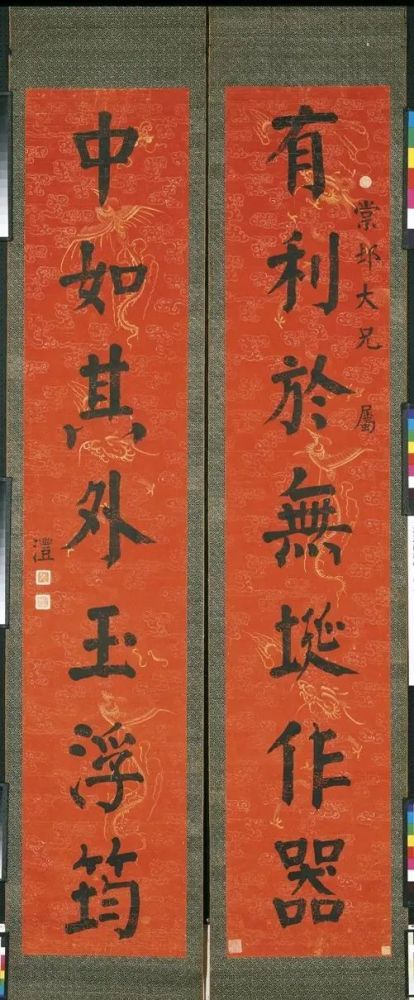 棠邨大兄 屬
有利於無埏作器
中如其外玉浮筠
澧